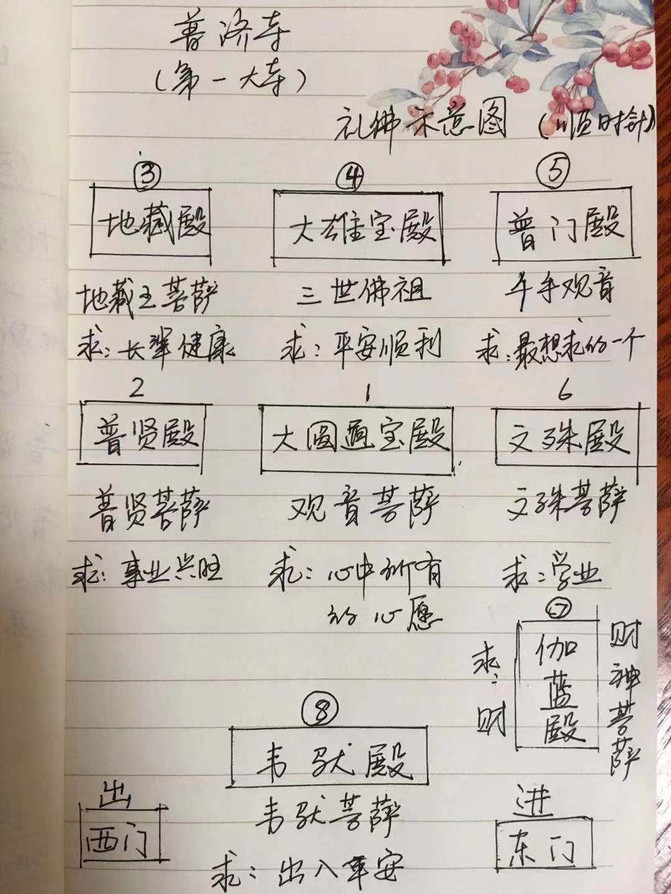 普济寺
(第一大寺)
礼佛示意图 (顺时针)
③ ④ ⑤
地藏殿 大雄宝殿 普门殿
地藏王菩萨 三世佛祖 千手观音
求:长辈健康 求:平安顺利 求:最想求的一个
2 1 6
普贤殿 大圆通宝殿 文殊殿
普贤菩萨 观音菩萨 文殊菩萨
求:事业兴旺 求:心中所有的心愿 求:学业
⑦
伽蓝殿
财神菩萨
求:财
⑧
韦驮殿
韦驮菩萨
求:出入平安
出
西门
进
东门